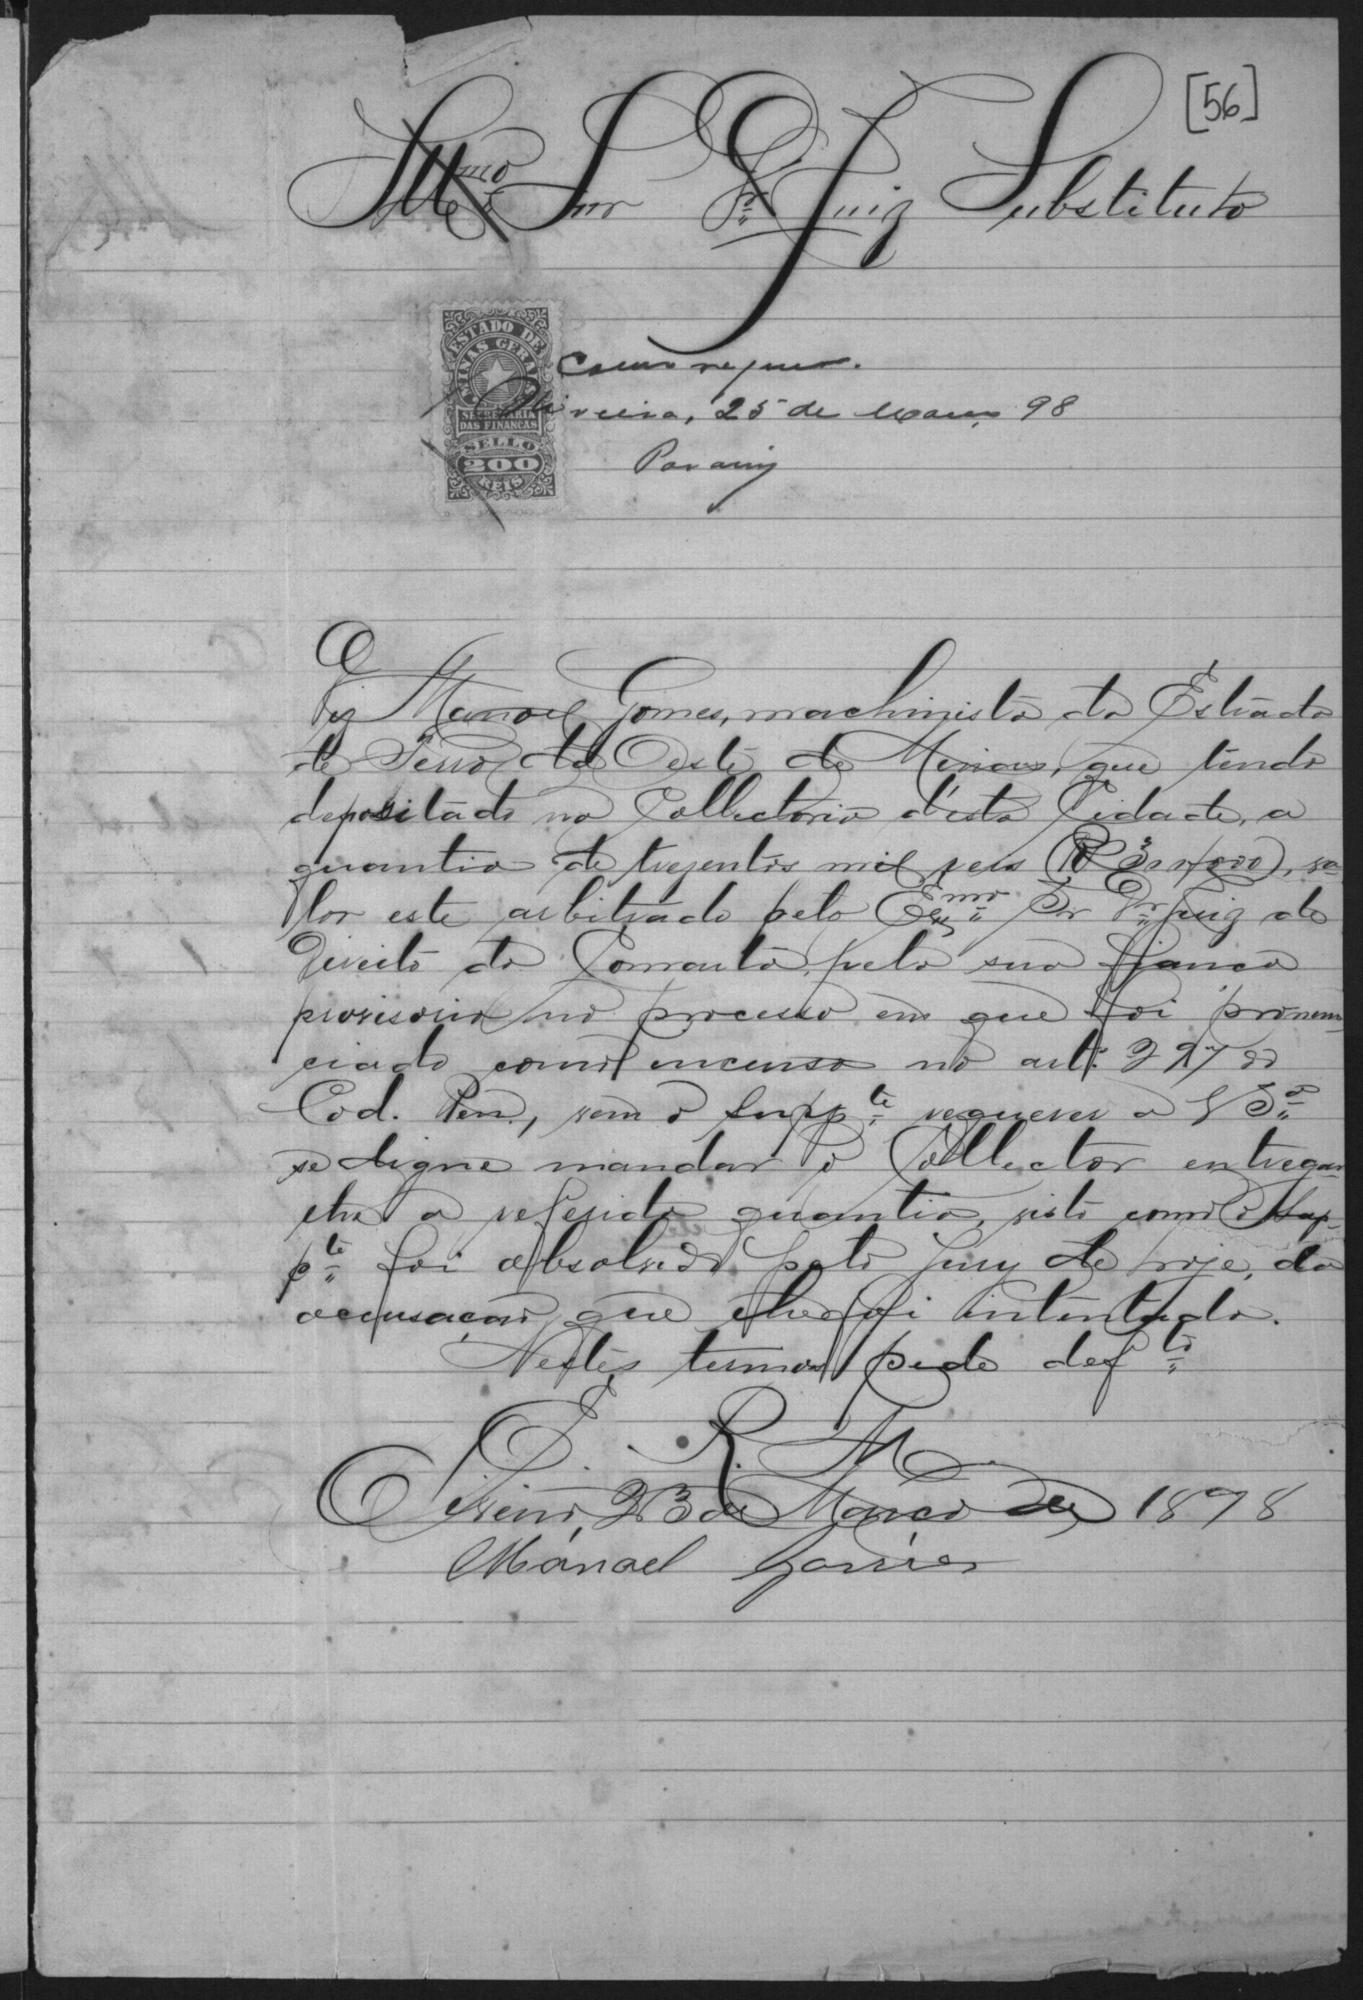 [56]
Illmo Snr Dr Juiz Substituto
ESTADO DE
MINAS GERAES
SECRETARIA
DAS FINANÇAS
SELLO
200
REIS
Como requer.
Oliveira, 25 de Março 98
Diz Manoel Gomes, machinista da Estrada
de Ferro do Oeste de Minas, que tendo
depositado na Collectoria d'esta Cidade, a
quantia de trezentos mil reis (Rs 300$000), va-
lor este arbitrado pelo Exmo Sr Dr Juiz de
Direito da Comarca, pela sua fiança
provisoria no processo em que foi pronun-
ciado como incurso no art. 297 do
Cod. Pen., vem o suppte requerer a V Sa
se digne mandar o Collector entregar
lhe a referida quantia, visto como o Sup-
pte foi absolvido pelo Jury de hoje, da
accusação que lhe foi intentada.
Nestes termos pede defto
E. R. M.
Oliveira, 23 de Março de 1898
Manoel Gomes